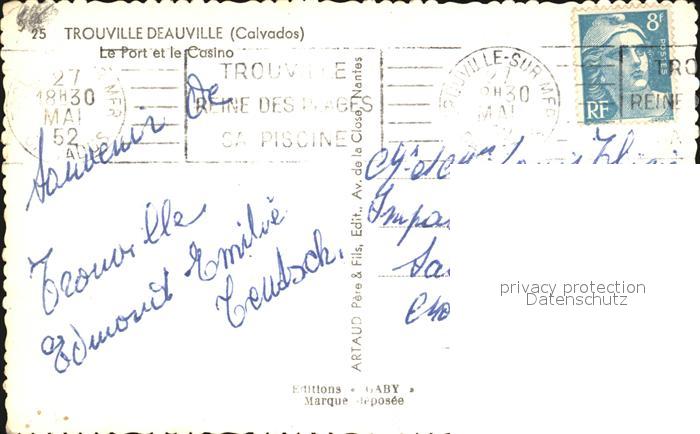 25 TROUVILLE DEAUVILLE (Calvados)
Le Port et le Casino
27
18H30
MAI
52
TROUVILLE
REINE DES PLAGES
SA PISCINE
TROUVILLE-SUR-MER
27
18H30
MAI
TRO
REINE
8F
POSTES
RF
Souvenir de
Trouville
Edmond Emilie
ARTAUD Père & Fils, Edit., Av. de la Close, Nantes
Mr et Mme
Impa
Sa
privacy protection
Datenschutz
Editions « GABY »
Marque déposée